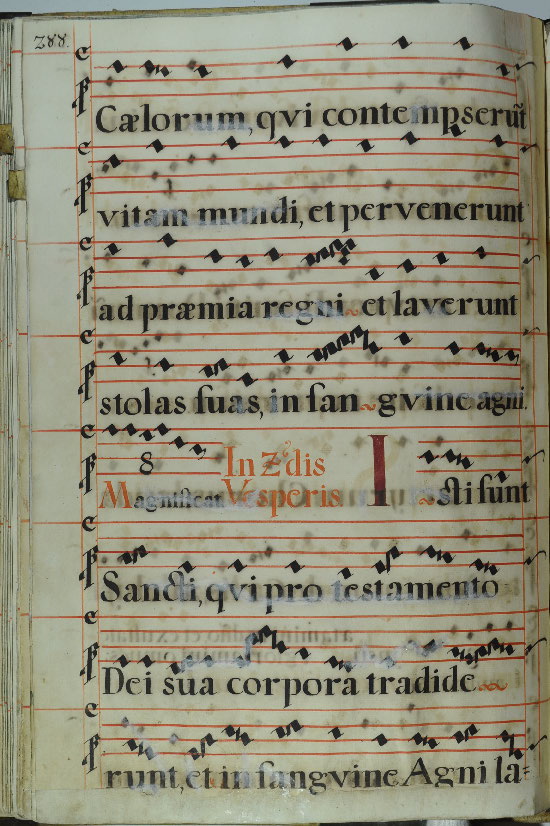 288.
Cælorum, qvi contempserūt
vitam mundi, et pervenerunt
ad præmia regni et laverunt
stolas suas, in san~gvine agni.
8 In 2.dis
Magnificat Vesperis I~sti sunt
Sancti, qvi pro testamento
Dei sua corpora tradide~
runt, et in sangvine Agni la=